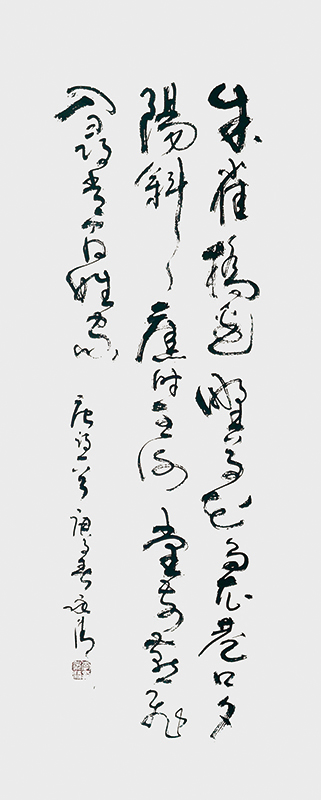 朱雀橋邊野草花烏衣巷口夕
陽斜舊時王謝堂前燕飛
入尋常百姓家 唐詩一首 庚子春